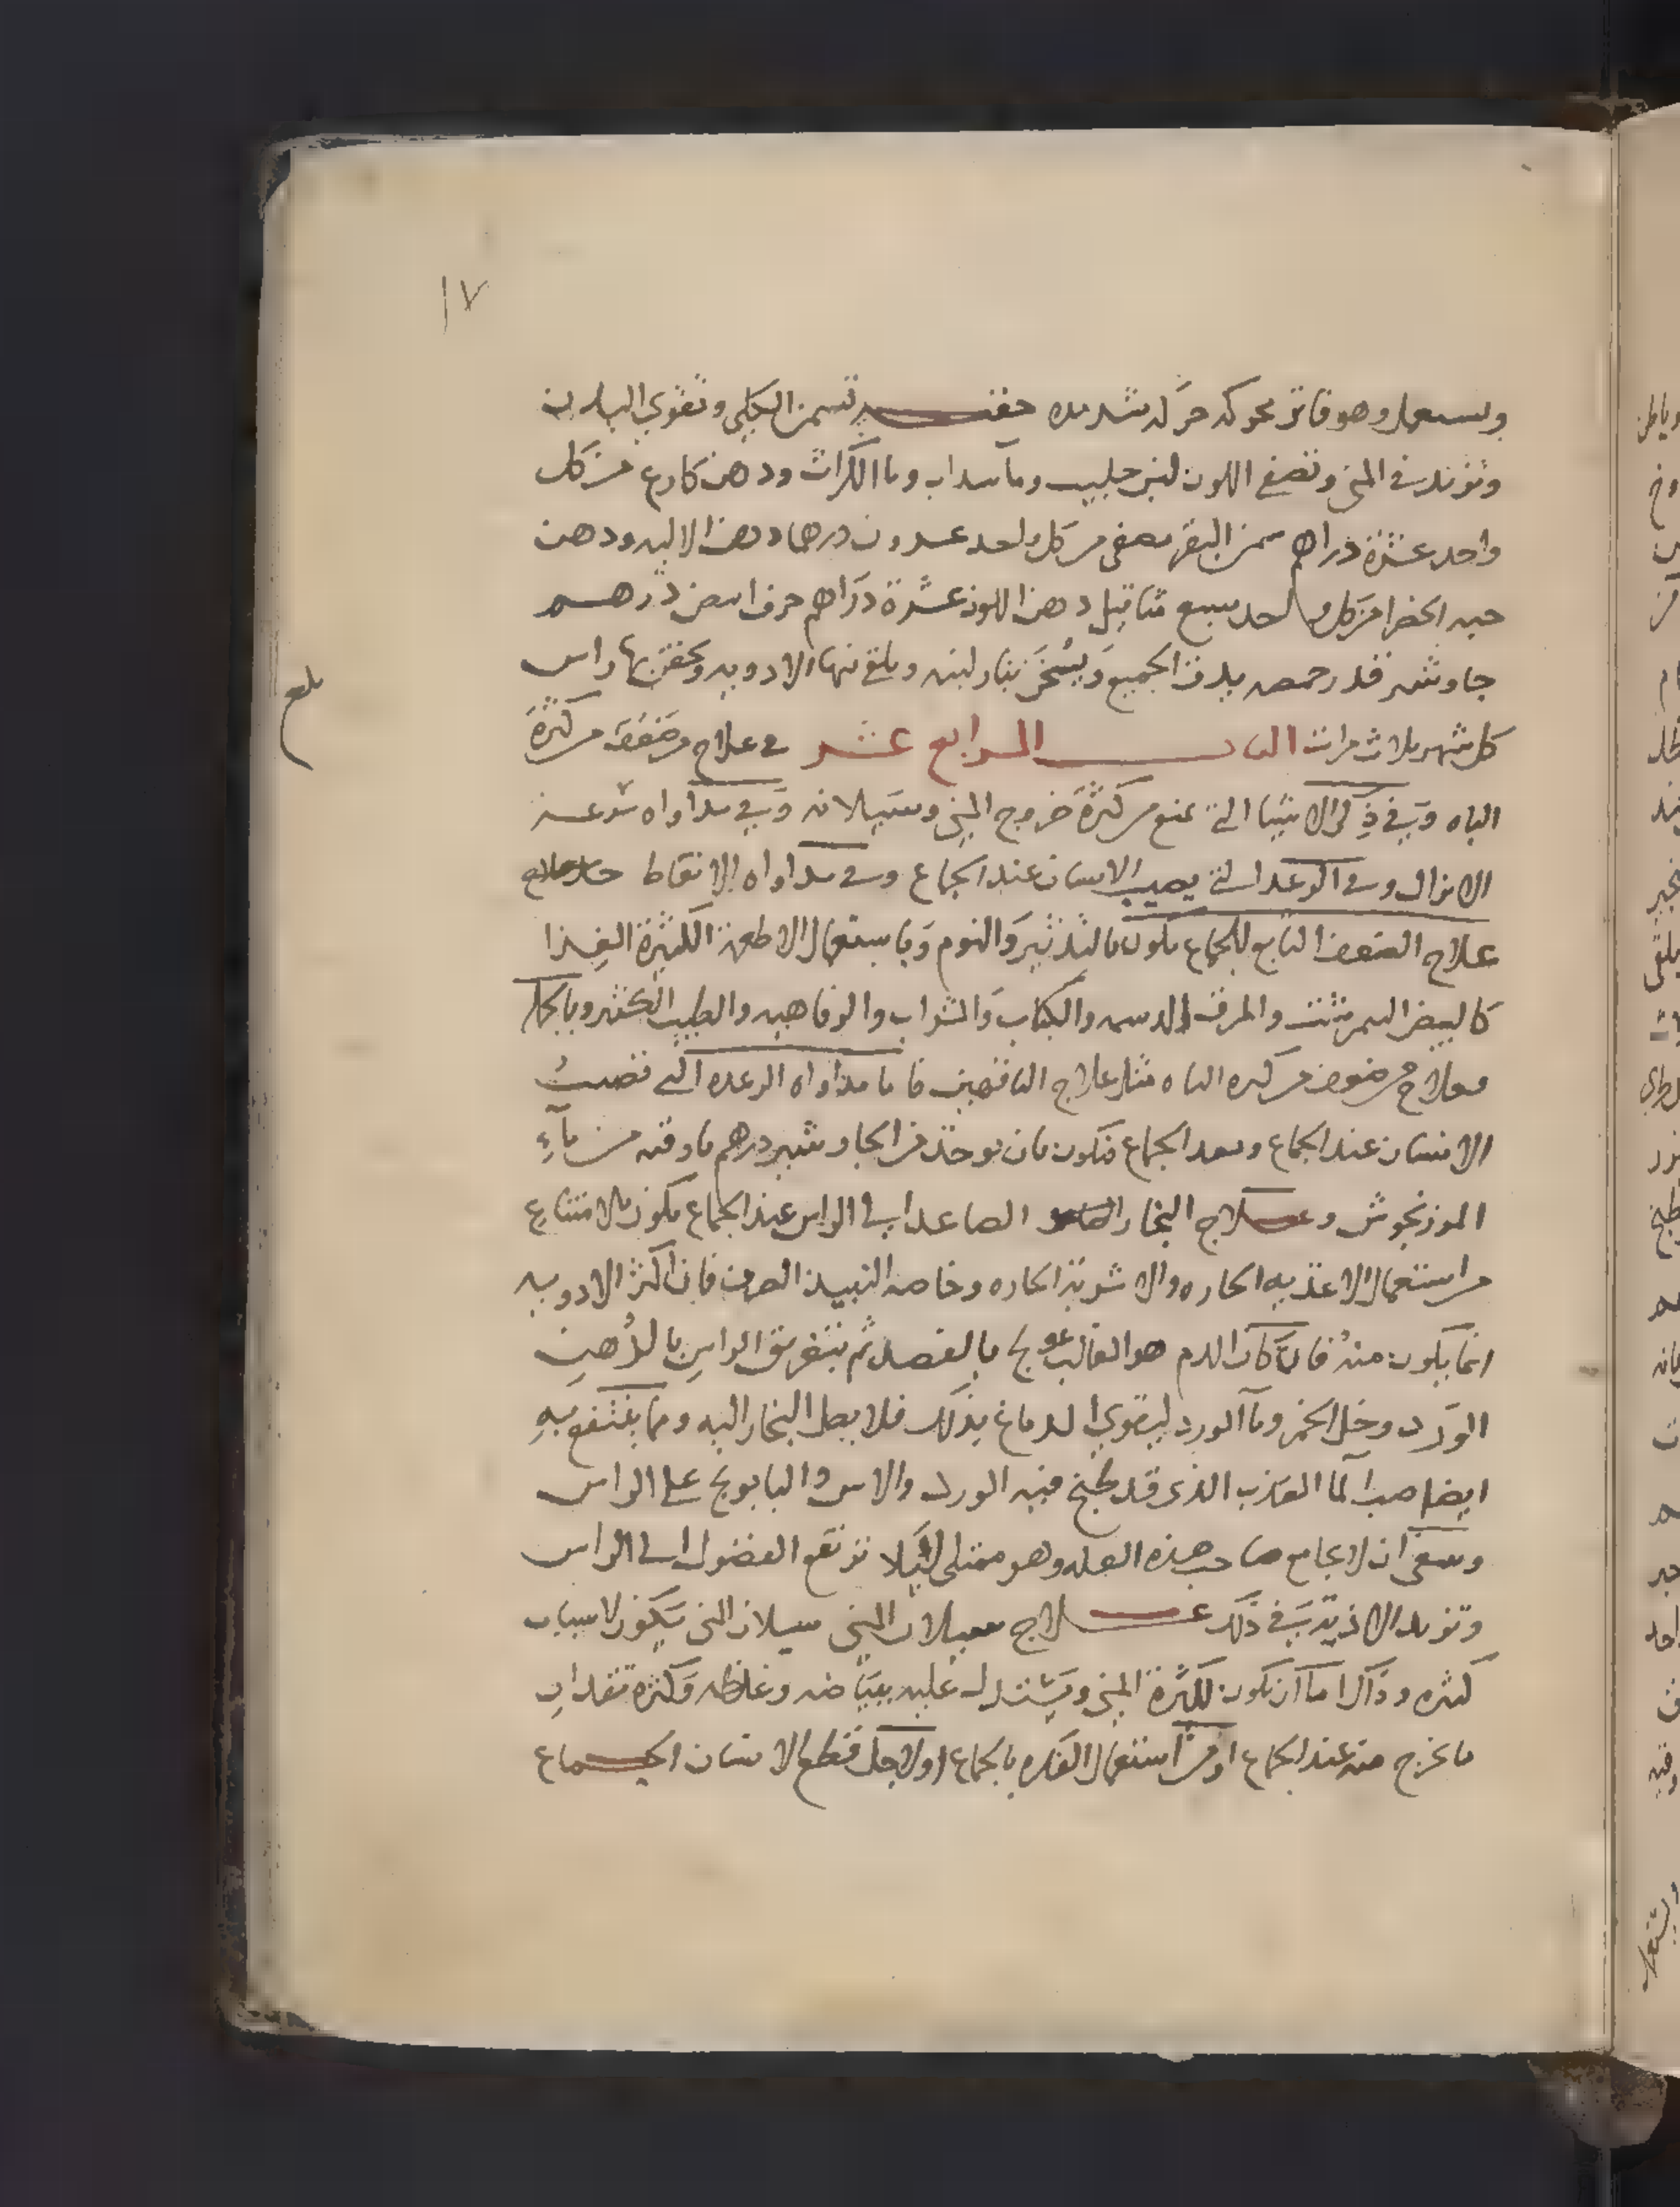 ١٧
ويستعمل وهو فاتر محركه حركه شديده حقنـــه تسمن الكلى وتقوي الباه
وتزيد في المنى وتصفي اللون لبن حليب وما سداب وما الكراث ودهن كارع من كل
واحد عشرة دراهم سمن البقر مصفى من كل واحد عشرون درهما دهن الاليه ودهن
حبه الخضرا من كل واحد سبع مثاقيل دهن اللوز عشرة دراهم حرف ابيض درهــم
جاوشير قدر حمصه يدق الجميع ويسخن بنار لينه ويلقى فيها الادويه ويحتقن بها راس
كل شهر ثلاث مرات البابـــــ الرابع عشر في علاج من ضعف من كثرة
بلغ
الباه وفي ذكر الاشيا التي تمنع من كثرة خروج المني وسيلانه وفي مداواه سرعه
الانزال وفي الرعده التي تصيب الانسان عند الجماع وفي مداواه الانعاط
علاج الضعف التابع للجماع يكون بالتدثير والنوم وباستعمال الاطعمة الكثيرة الغذا
كالبيض النمرشت والمرق الدسمه والكباب والشراب والرفاهيه والطيب الكثير وبالجمله
فعلاج من ضعف من كثره الباه مثل علاج الناقهين فاما مداواه الرعده التي تصيب
الانسان عند الجماع وبعد الجماع فتكون بان يوخذ من الجاوشير درهم باوقيه من مآءِ
المرزنجوش وعـــلاج البخار الصاعد الى الراس عند الجماع يكون بالامتناع
من استعمال الاغذيه الحاره والاشربة الحاره وخاصه النبيذ الصرف فان اكثر الادويه
انما يكون منهُ فان كان الدم هو الغالب عولج بالفصد ثم بتغريق الراس بالدُهن
الوَرد وخل الخمر وما الورد ليقوي الدماغ بذلك فلا يصل البخار اليه ومما ينتفع بهِ
ايضا صب الما العذب الذي قد طبخ فيه الورد والاس والبابونج على الراس
وينبغي ان لا يجامع صاحب هذه العله وهو ممتلي لئلا ترتفع الفضول الى الراس
وتزيد الاذيه في ذلك عــــلاج سيلان المني سيلان المنى يكون لاسباب
كثيره وذلك اما ان تكون لكثرة المني ويستدل عليه ببياضه وغلظه وكثرة مقدار
ما يخرج منه عند الجماع او من استعمال الفكره بالجماع او لاجل قطع الانسان الجـــماع